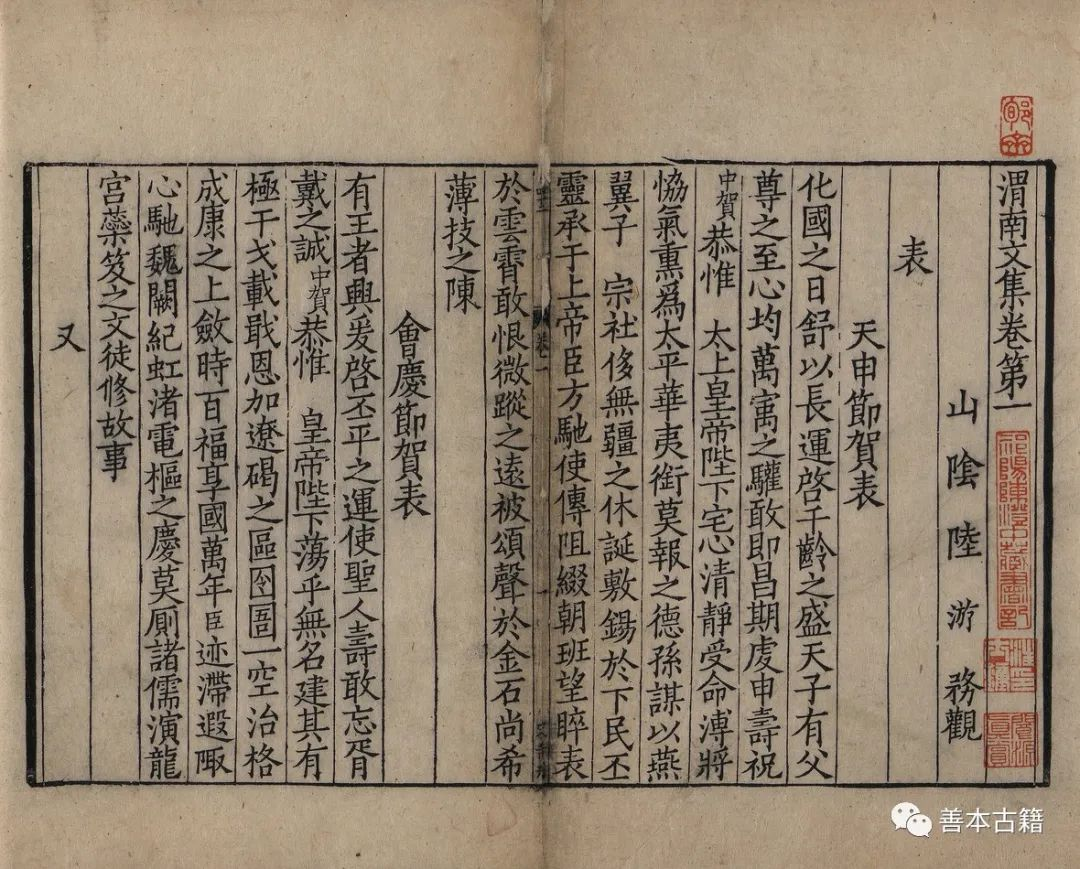 渭南文集卷第一
山陰陸游務觀
表
天申節賀表
化國之日舒以長運啓千齡之盛天子有父
尊之至心均萬㝢之驩敢即昌期虔申壽祝
中賀恭惟 太上皇帝陛下宅心清靜受命溥將
恊氣熏爲太平華夷銜莫報之德孫謀以燕
翼子 宗社侈無疆之休誕敷錫於下民丕
靈承于上帝臣方馳使傳阻綴朝班望睟表
於雲霄敢恨微蹤之遠被頌聲於金石尚希
薄技之陳
會慶節賀表
有王者興爰啓丕平之運使聖人壽敢忘胥
戴之誠中賀恭惟 皇帝陛下蕩乎無名建其有
極干戈載戢恩加遼碣之區囹圄一空治格
成康之上斂時百福享國萬年臣迹滯遐陬
心馳魏闕紀虹渚電樞之慶莫厠諸儒演龍
宮蘂笈之文徒修故事
又
卷一
祁陽陳澄中藏書記
善本古籍